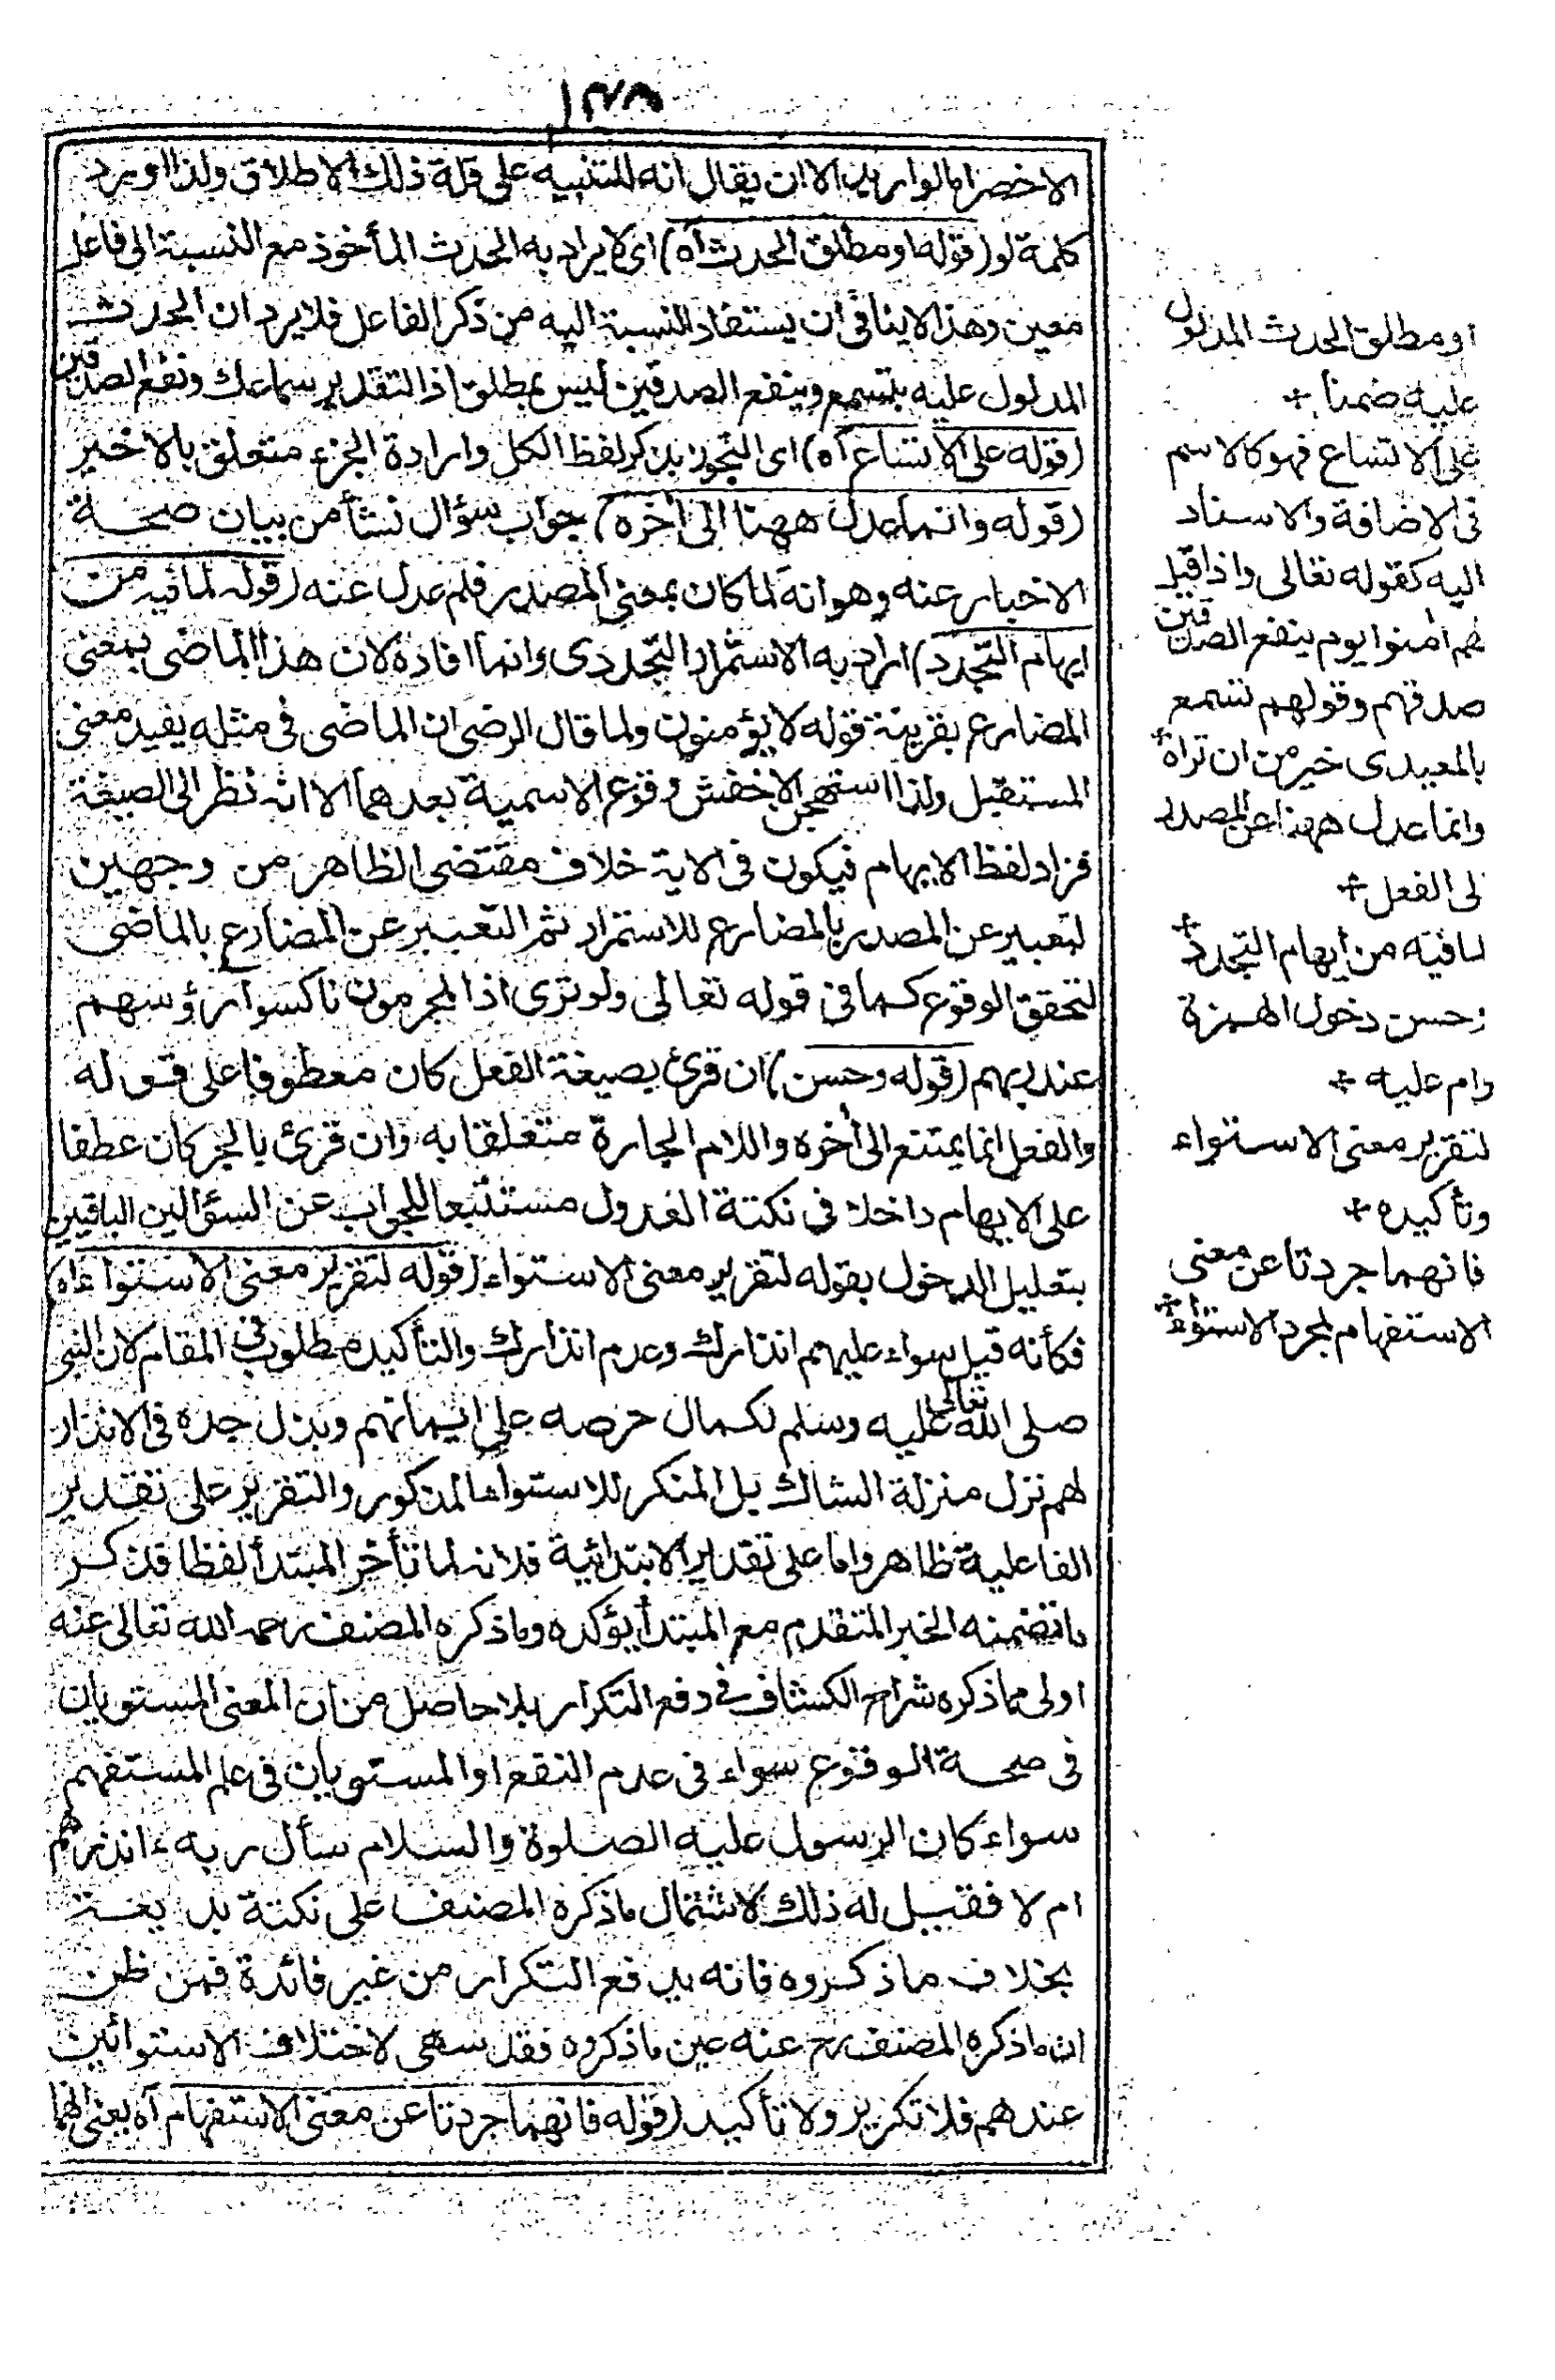 ١٤٣
الاخصر اما لو اريد الا ان يقال انه للتنبيه على قلة ذلك الاطلاق ولذا اورد
كلمة لو (قوله او مطلق الحدث آه) اى لا يراد به الحدث المأخوذ مع النسبة الى فاعل
معين وهذا لا ينافى ان يستفاد النسبة اليه من ذكر الفاعل فلا يرد ان الحدث
المدلول عليه بتسمع وينفع الصدقين ليس بمطلق اذ التقدير سماعك ونفع الصدقين
(قوله على الاتساع آه) اى التجوز بذكر لفظ الكل وارادة الجزء متعلق بالاخير
(قوله وانما عدل ههنا الى أخره) جواب سؤال نشأ من بيان صحة
الاخبار عنه وهو انه لما كان بمعنى المصدر فلم عدل عنه (قوله لما فيه من
ايهام التجدد) اراد به الاستمرار التجددى وانما افاده لان هذا الماضى بمعنى
المضارع بقرينة قوله لا يؤمنون ولما قال الرضى ان الماضى فى مثله يفيد معنى
المستقبل ولذا استهجن الاخفش وقوع الاسمية بعدهما الا انه نظر الى الصيغة
فزاد لفظ الايهام فيكون فى الاية خلاف مقتضى الظاهر من وجهين
لتعبير عن المصدر بالمضارع للاستمرار ثم التعبير عن المضارع بالماضى
لتحقق الوقوع كما فى قوله تعالى ولو ترى اذ المجرمون ناكسوا رؤسهم
عند ربهم (قوله وحسن) ان قرئ بصيغة الفعل كان معطوفا على قوله
والفعل انما يمتنع الى أخره واللام الجارة متعلقا به وان قرئ بالجر كان عطفا
على الايهام داخلا فى نكتة العدول مستتبعا للجواب عن السؤالين الباقيين
بتعليل الدخول بقوله لتقرير معنى الاستواء (قوله لتقرير معنى الاستواء آه)
فكأنه قيل سواء عليهم انذارك وعدم انذارك والتأكيده مطلوب فى المقام لان النبى
صلى الله تعالى عليه وسلم لكمال حرصه على ايمانهم وبذل جده فى الانذار
لهم نزل منزلة الشاك بل المنكر للاستواء المذكور والتقرير على تقدير
الفاعلية ظاهر واما على تقدير الابتدائية فلانه لما تأخر المبتدأ لفظا فذكر
ما تضمنه الخبر المتقدم مع المبتدأ يؤكده وما ذكره المصنف رحمه الله تعالى عنه
اولى مما ذكره شراح الكشاف فى دفع التكرار بلا حاصل من ان المعنى المستويان
فى صحة الوقوع سواء فى عدم النفع او المستويان فى علم المستفهم
سواء كان الرسول عليه الصلوة والسلام سأل ربه ءانذرتهم
ام لا فقيل له ذلك لاشتمال ما ذكره المصنف على نكتة بديعة
بخلاف ما ذكروه فانه يدفع التكرار من غير فائدة فمن ظن
ان ما ذكره المصنف رح عنه عين ما ذكروه فقد سهى لاختلاف الاستوائين
عندهم فلا تكرير ولا تأكيد (قوله فانهما جردتا عن معنى الاستفهام آه يعنى انهما
او مطلق الحدث المدلول
عليه ضمنا
على الاتساع فهو كالاسم
فى الاضافة والاسناد
اليه كقوله تعالى واذا قيل
لهم أمنوا يوم ينفع الصدقين
صدقهم وقولهم تسمع
بالمعيدى خير من ان تراه
وانما عدل ههنا عن المصدر
لى الفعل
لما فيه من ايهام التجدد
وحسن دخول الهمزة
وام عليه
لتقرير معنى الاستواء
وتأكيده
فانهما جردتا عن معنى
الاستفهام لمجرد الاستواء